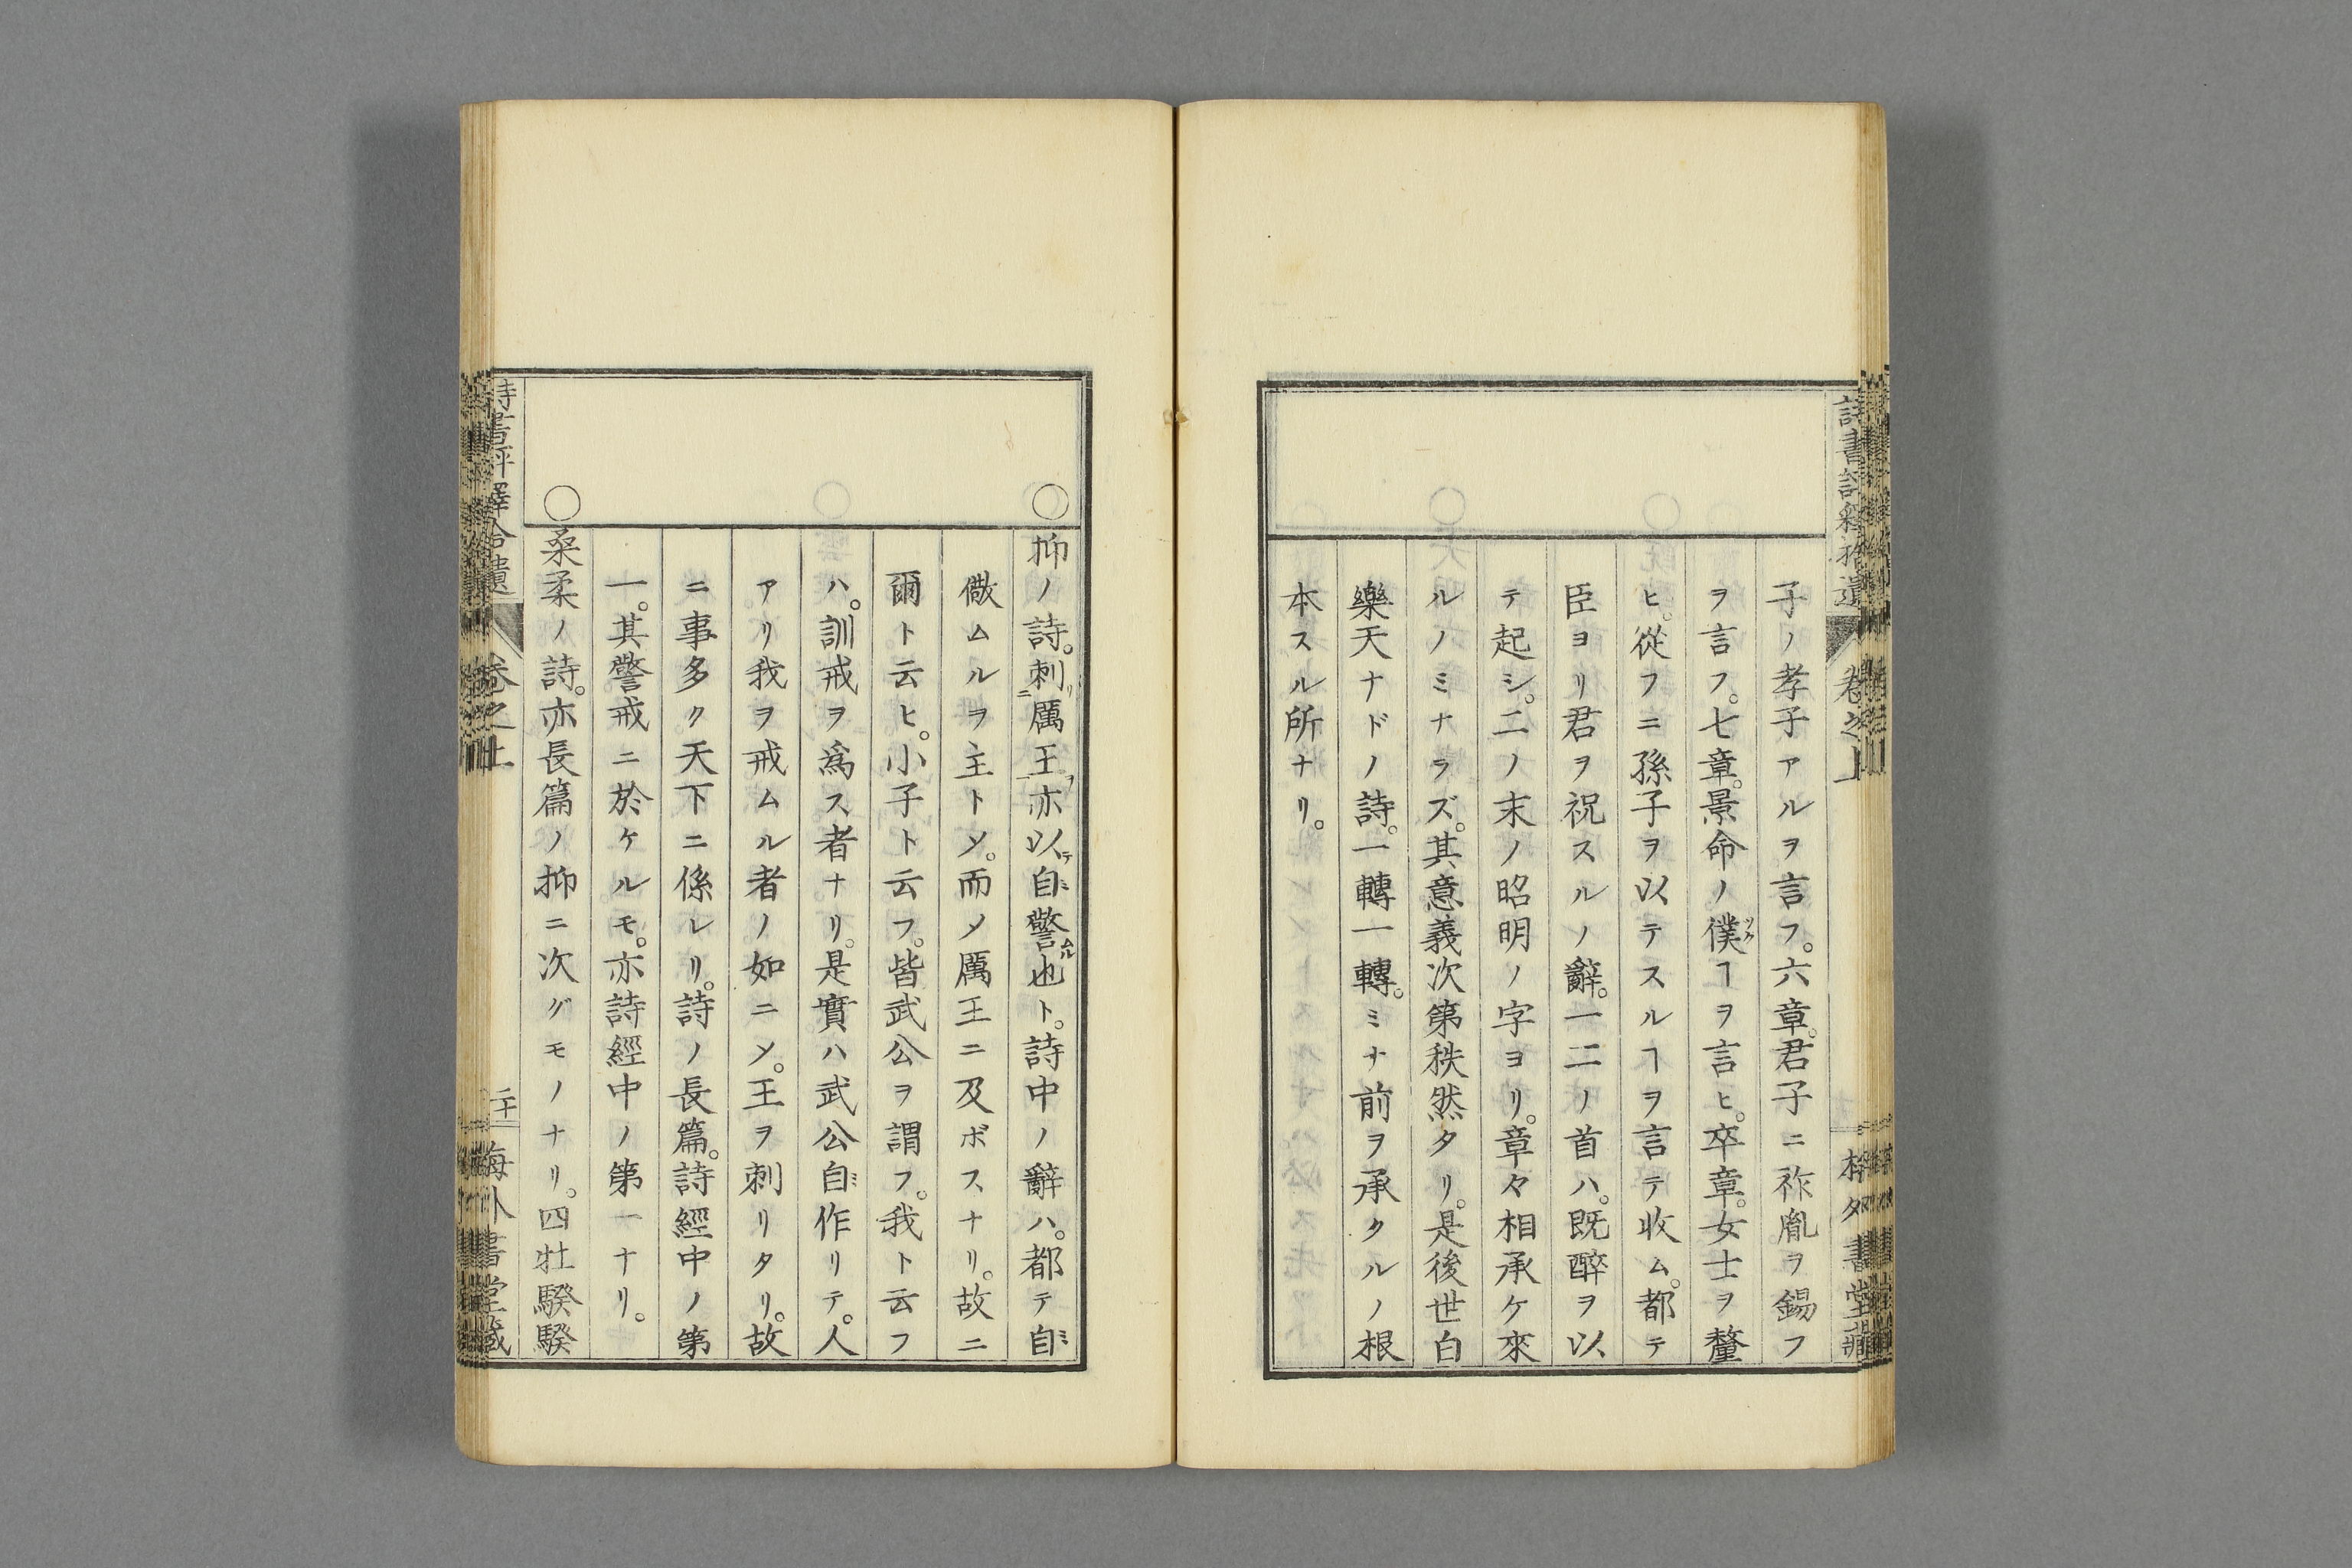 子ノ孝子アルヲ言フ。六章。君子ニ祚胤ヲ錫フ
ヲ言フ。七章。景命ノ僕ヿヲ言ヒ。卒章。女士ヲ釐
ヒ。從フニ孫子ヲ以テスルヿヲ言テ收ム。都テ
臣ヨリ君ヲ祝スルノ辭。一二ノ首ハ。既醉ヲ以
テ起シ。二ノ末ノ昭明ノ字ヨリ。章々相承ケ來
ルノミナラズ。其意義次第秩然タリ。是後世白
樂天ナドノ詩。一轉一轉。ミナ前ヲ承クルノ根
本スル所ナリ。
○抑ノ詩。刺厲王亦以自警也ト。詩中ノ辭ハ。都テ自
儆ムルヲ主トソ。而メ厲王ニ及ボスナリ。故ニ
爾ト云ヒ。小子ト云フ。皆武公ヲ謂フ。我ト云フ
ハ。訓戒ヲ爲ス者ナリ。是實ハ武公自作リテ。人
アリ我ヲ戒ムル者ノ如ニソ。王ヲ刺リタリ。故
ニ事多ク天下ニ係レリ。詩ノ長篇。詩經中ノ第
一。其警戒ニ於ケルモ。亦詩經中ノ第一ナリ。
○桑柔ノ詩。亦長篇ノ抑ニ次グモノナリ。四牡騤騤
卷之上